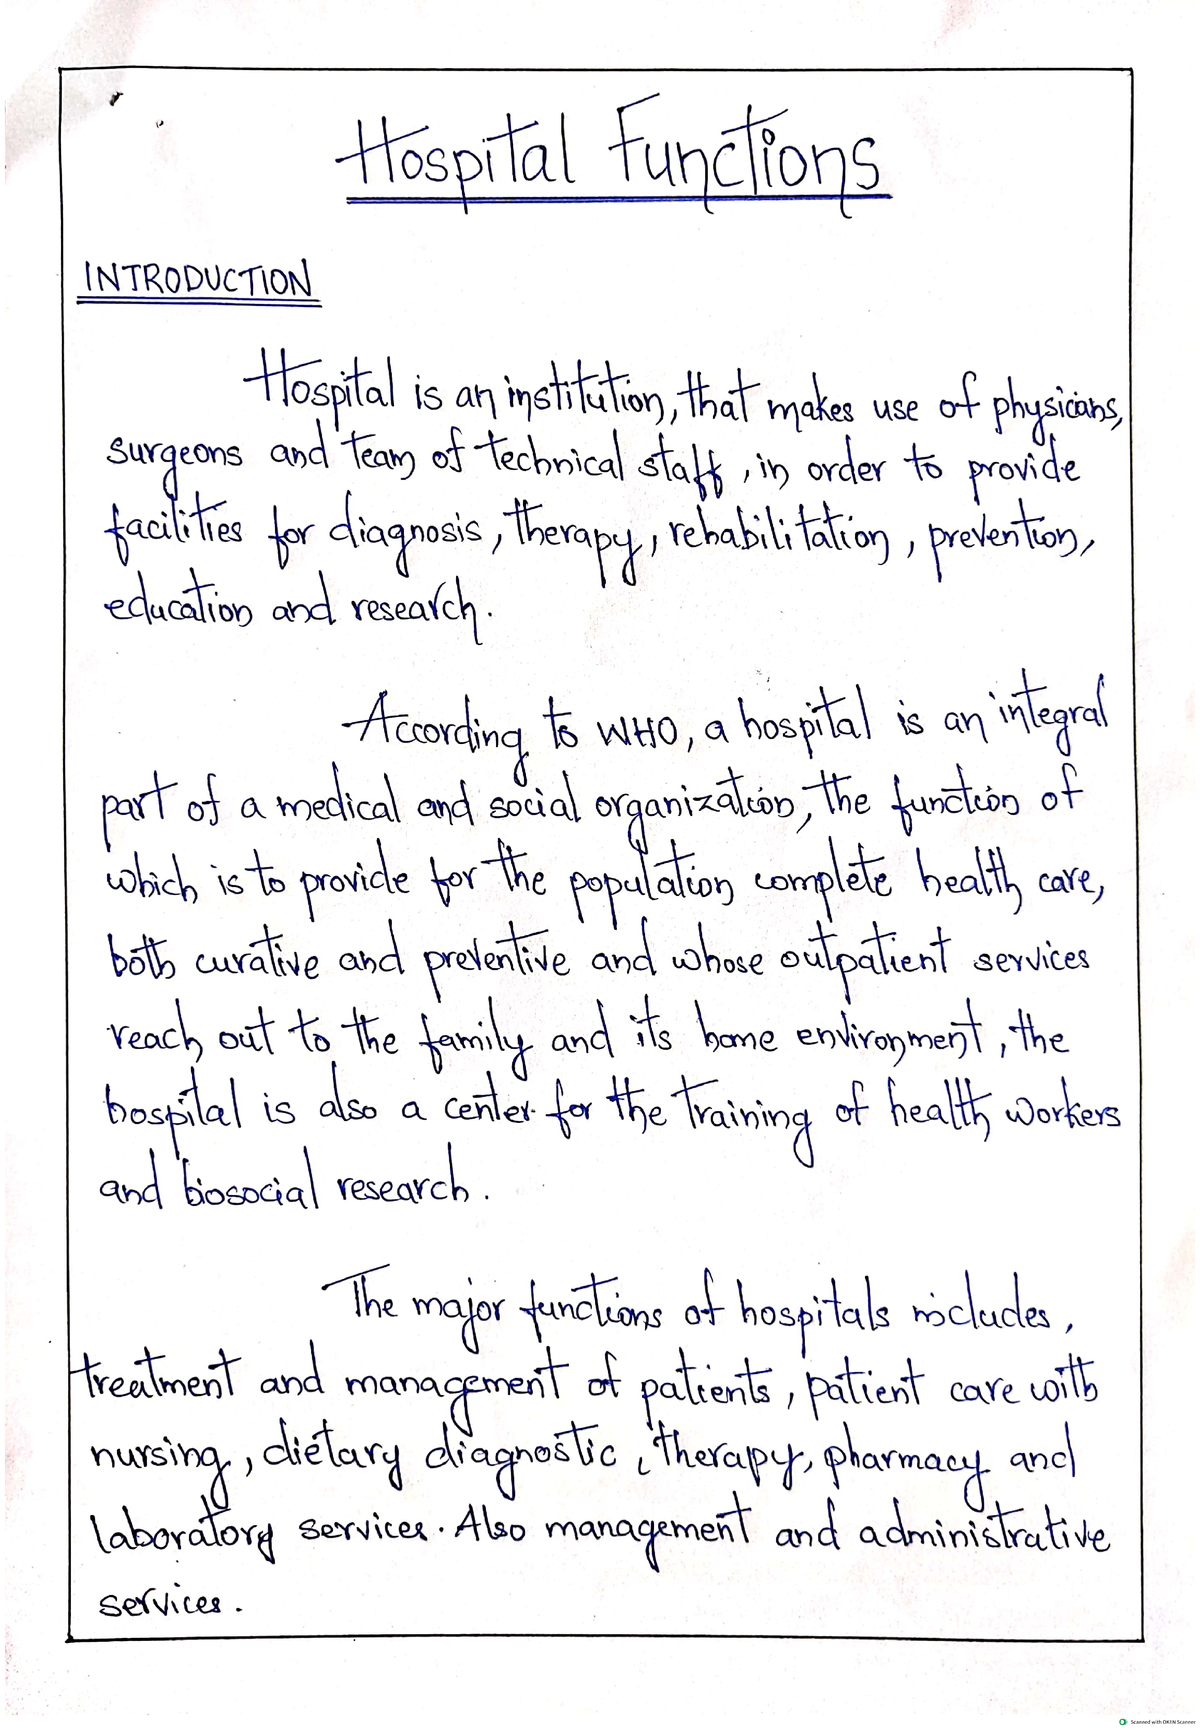 Hospital Functions
INTRODUCTION
Hospital is an institution, that makes use of physicians,
surgeons and team of technical staff, in order to provide
facilities for diagnosis, therapy, rehabilitation, prevention,
education and research.
According to WHO, a hospital is an integral
part of a medical and social organization, the function of
which is to provide for the population complete health care,
both curative and preventive and whose outpatient services
reach out to the family and its home environment, the
hospital is also a center for the training of health workers
and biosocial research.
The major functions of hospitals includes,
treatment and management of patients, patient care with
nursing, dietary diagnostic, therapy, pharmacy and
laboratory services. Also management and administrative
services.
Scanned with OKEN Scanner